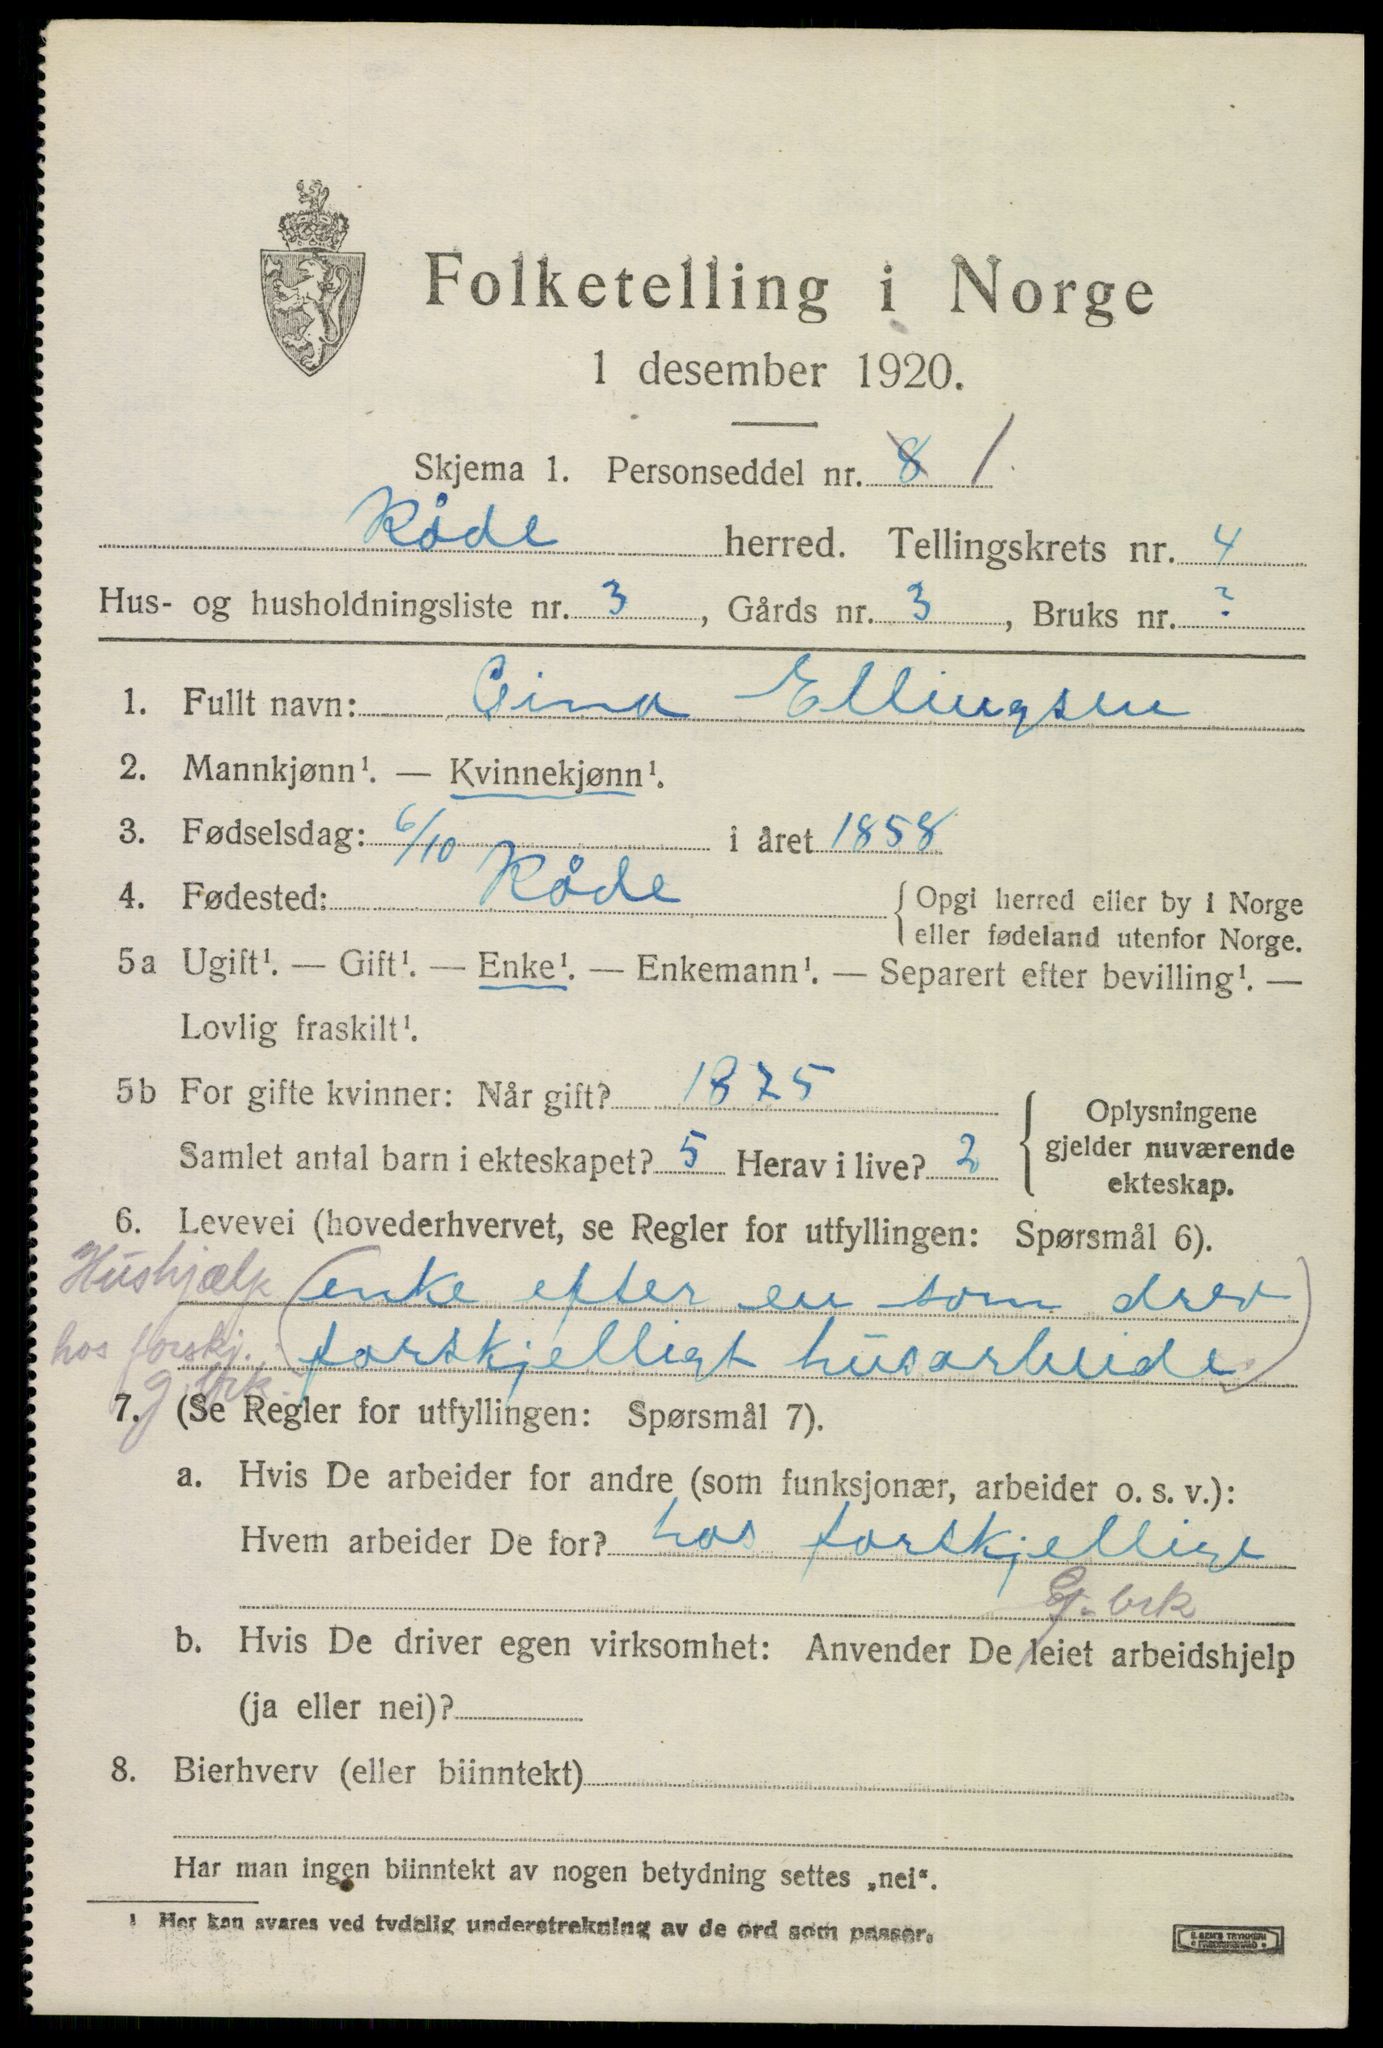 Folketelling i Norge
1 desember 1920.
Skjema 1. Personseddel nr. 8 1.
Råde herred. Tellingskrets nr. 4
Hus- og husholdningsliste nr. 3, Gårds nr. 3, Bruks nr. ?
1. Fullt navn: Gina Ellingsen
2. Mannkjønn¹. — Kvinnekjønn¹.
3. Fødselsdag: 6/10 i året 1858
4. Fødested: Råde { Opgi herred eller by i Norge
eller fødeland utenfor Norge.
5a Ugift¹. — Gift¹. — Enke¹. — Enkemann¹. — Separert efter bevilling¹. —
Lovlig fraskilt¹.
5b For gifte kvinner: Når gift? 1875
Samlet antal barn i ekteskapet? 5 Herav i live? 2
{ Oplysningene
gjelder nuværende
ekteskap.
6. Levevei (hovederhvervet, se Regler for utfyllingen: Spørsmål 6).
Hushjælp (enke efter en som drev
hos forskj. forskjelligt husarbeide)
g.brk.
7. (Se Regler for utfyllingen: Spørsmål 7).
a. Hvis De arbeider for andre (som funksjonær, arbeider o. s. v.):
Hvem arbeider De for? hos forskjellige
G.brk
b. Hvis De driver egen virksomhet: Anvender De leiet arbeidshjelp
(ja eller nei)?
8. Bierhverv (eller biinntekt)
Har man ingen biinntekt av nogen betydning settes „nei“.
¹ Her kan svares ved tydelig understrekning av de ord som passer.
E. SEM'S TRYKKERI
FREDRIKSHALD